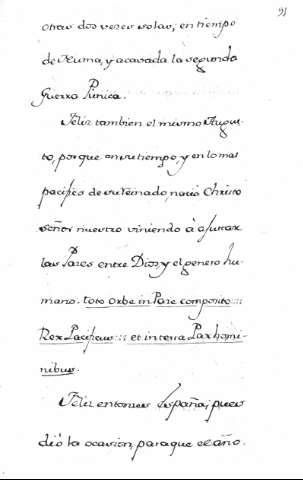 91
otras dos veces solas; en tiempo
de Numa, y acavada la segunda
Guerra Púnica.
Feliz tambien el mismo Augus-
to, porque en su tiempo, y en lo mas
pacifico de su reinado, nacio Christo
señor nuestro viniendo à ajustar
las Pazes entre Dios, y el genero hu-
mano. toto Orbe in Pace composito:::
Rex Pacificus::: et in terra Pax homi-
nibus.
Feliz entonces España; pues
dió la ocasion, para que el año.